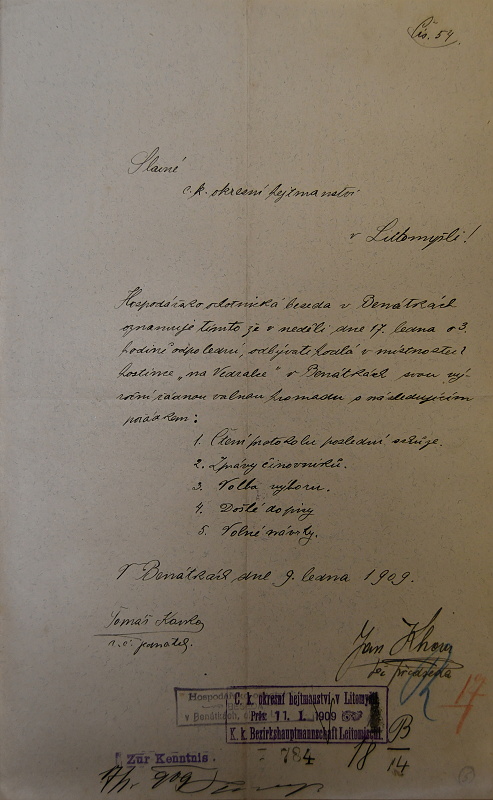 Čís. 54.
Slavné
c. k. okresní hejtmanství
v Litomyšli!
Hospodářsko čtenářská beseda v Benátkách
oznamuje tímto že v neděli dne 17. ledna o 3.
hodině odpolední, odbývati hodlá v místnostech
hostince „na Vedralce" v Benátkách svou vý-
roční řádnou valnou hromadu s následujícím
pořádkem:
1. Čtení protokolu poslední schůze.
2. Zprávy činovníků.
3. Volba výboru.
4. Došlé dopisy
5. Volné návrhy.
V Benátkách dne 9. ledna 1909.
Tomáš
t. č. jednatel.
Jan
t. č. předseda
"Hospodářsko
v Benátkách
C. k. okresní hejtmanství v Litomyšli
Präs. 11. 1. 1909
K. k. Bezirkshauptmannschaft Leitomischl
784
18 B/14
17
Zur Kenntnis.
17/1. 909